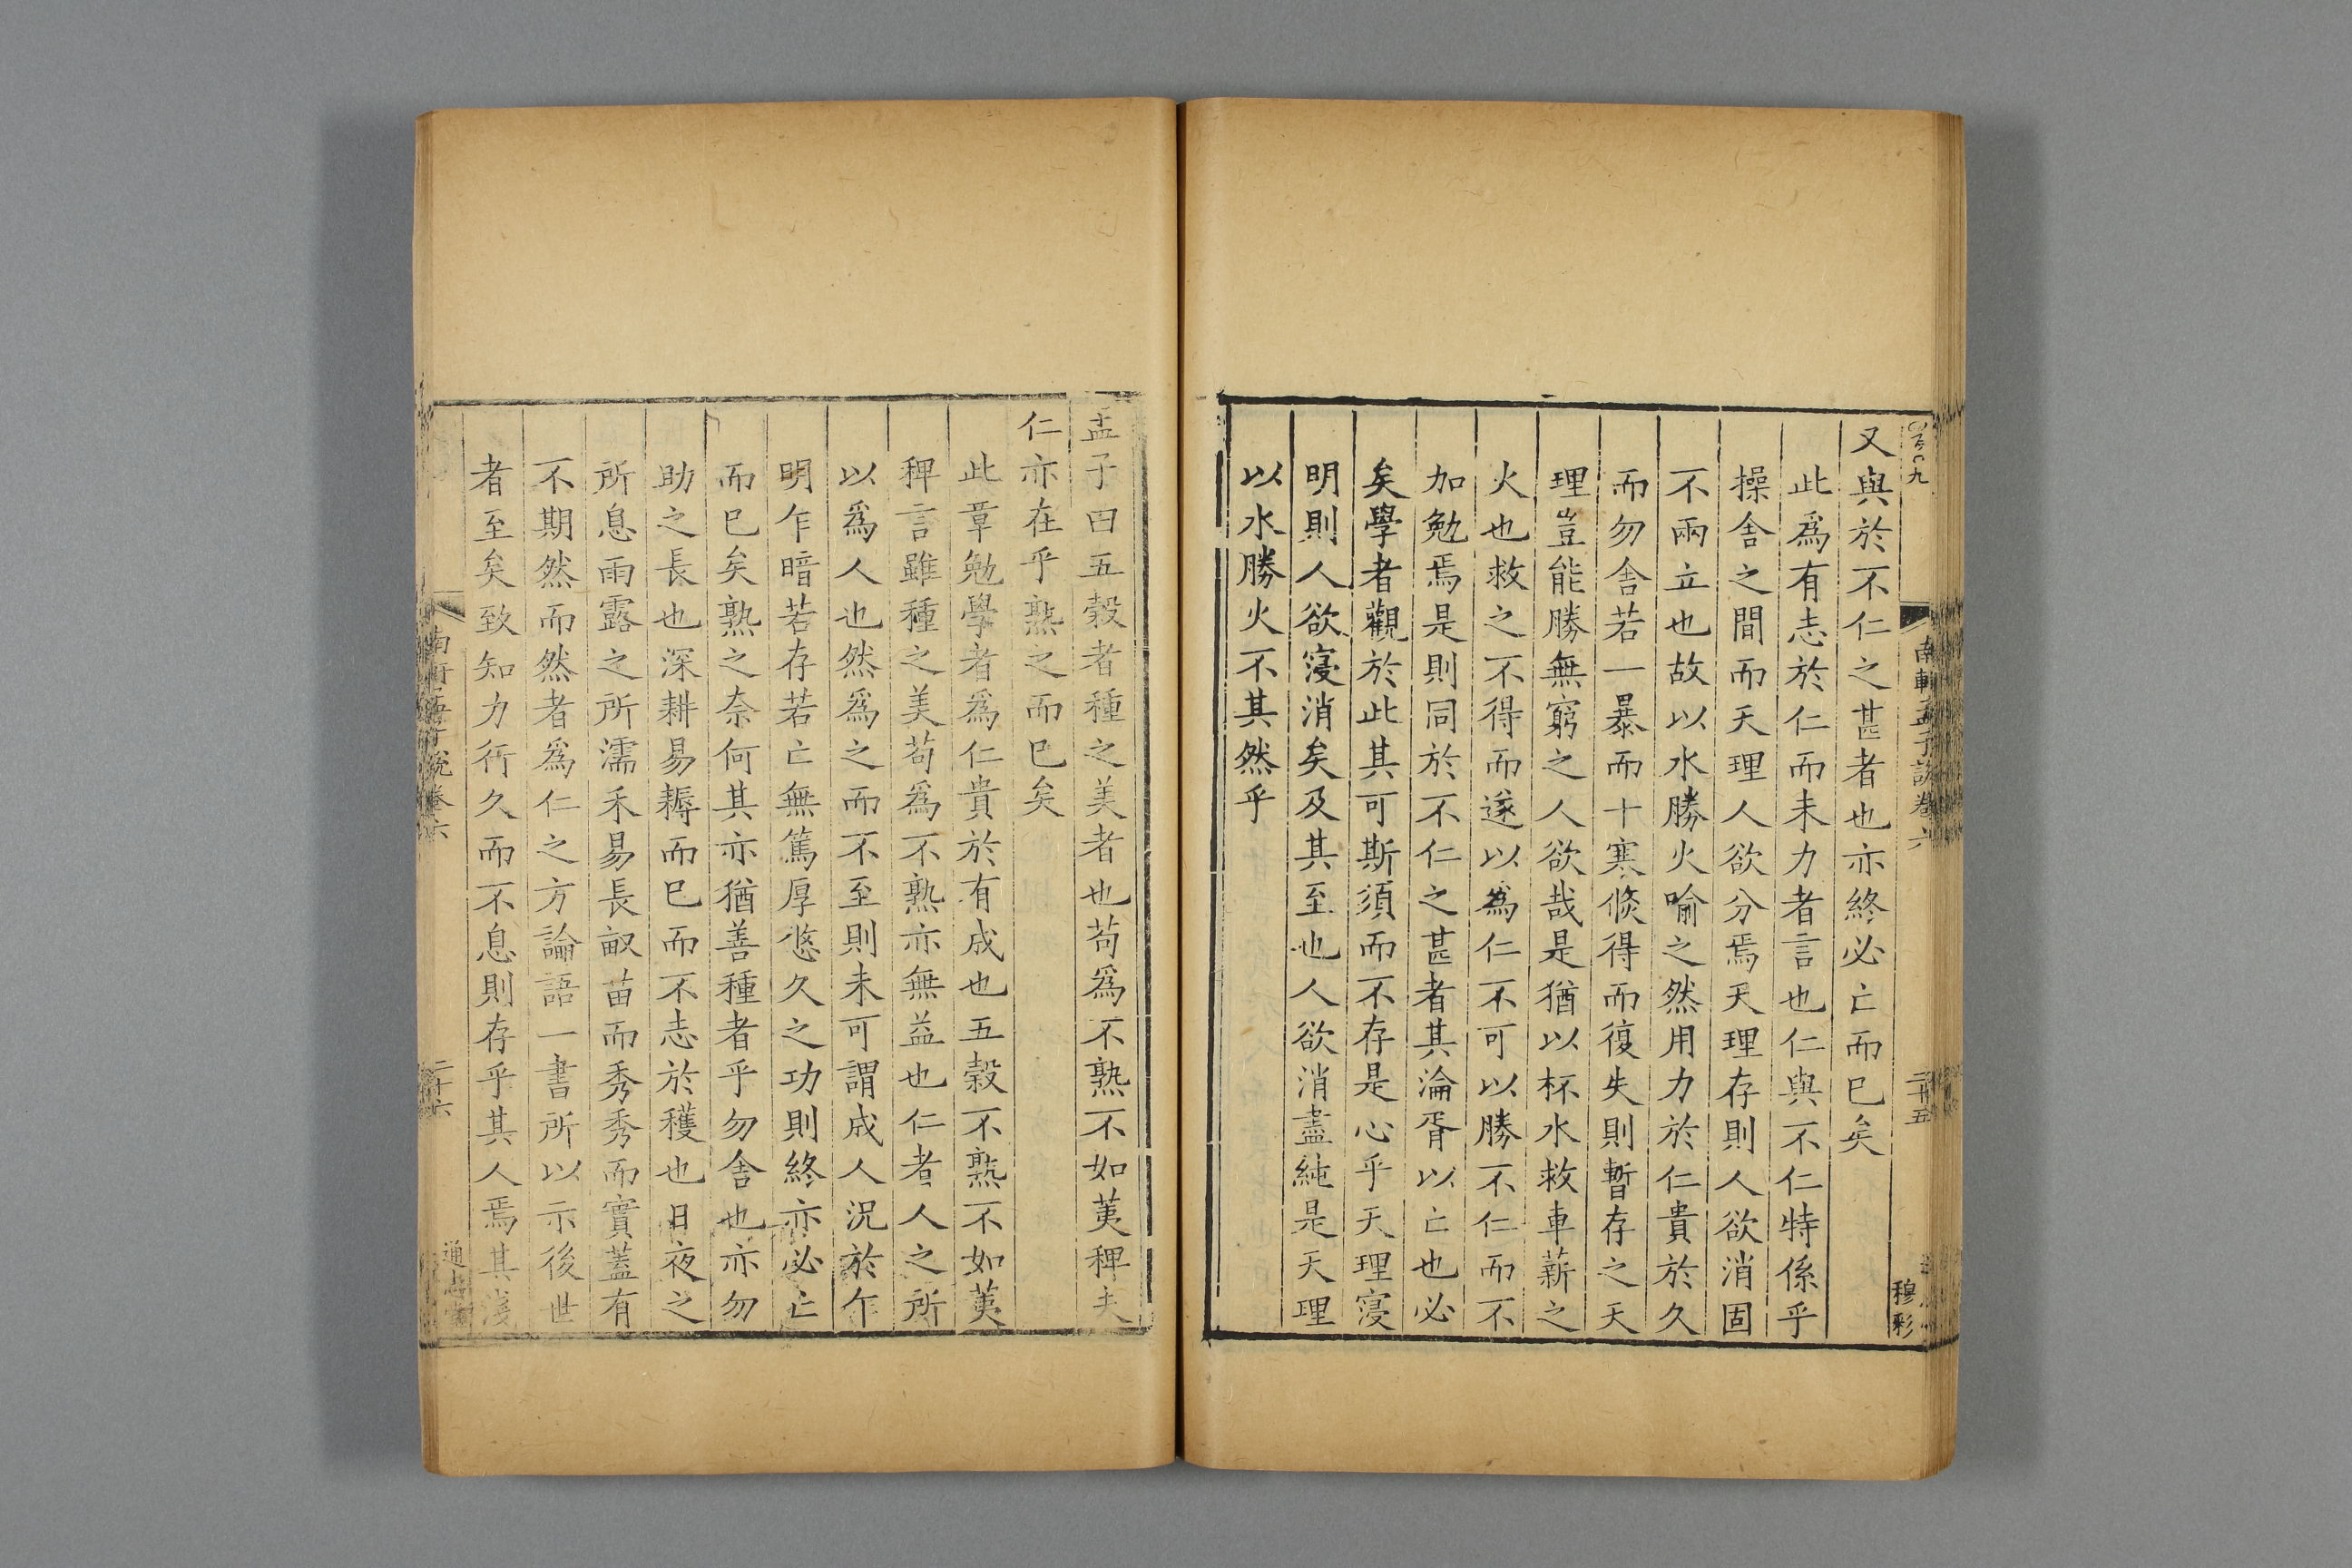 又與於不仁之甚者也亦終必亡而已矣
此爲有志於仁而未力者言也仁與不仁特係乎
操舍之間而天理人欲分焉天理存則人欲消固
不兩立也故以水勝火喻之然用力於仁貴於久
而勿舍若一暴而十寒倐得而復失則暫存之天
理豈能勝無窮之人欲哉是猶以杯水救車薪之
火也救之不得而遂以爲仁不可以勝不仁而不
加勉焉是則同於不仁之甚者其淪胥以亡也必
矣學者觀於此其可斯須而不存是心乎天理寖
明則人欲寖消矣及其至也人欲消盡純是天理
以水勝火不其然乎
南軒孟子說卷六
二十五
穆彩
孟子曰五穀者種之美者也苟爲不熟不如荑稗夫
仁亦在乎熟之而已矣
此章勉學者爲仁貴於有成也五穀不熟不如荑
稗言雖種之美苟爲不熟亦無益也仁者人之所
以爲人也然爲之而不至則未可謂成人況於乍
明乍暗若存若亡無篤厚悠久之功則終亦必亡
而已矣熟之奈何其亦猶善種者乎勿舍也亦勿
助之長也深耕易耨而已而不志於穫也日夜之
所息雨露之所濡禾易長畝苗而秀秀而實蓋有
不期然而然者爲仁之方論語一書所以示後世
者至矣致知力行久而不息則存乎其人焉其淺
卷六
二十六
通志堂